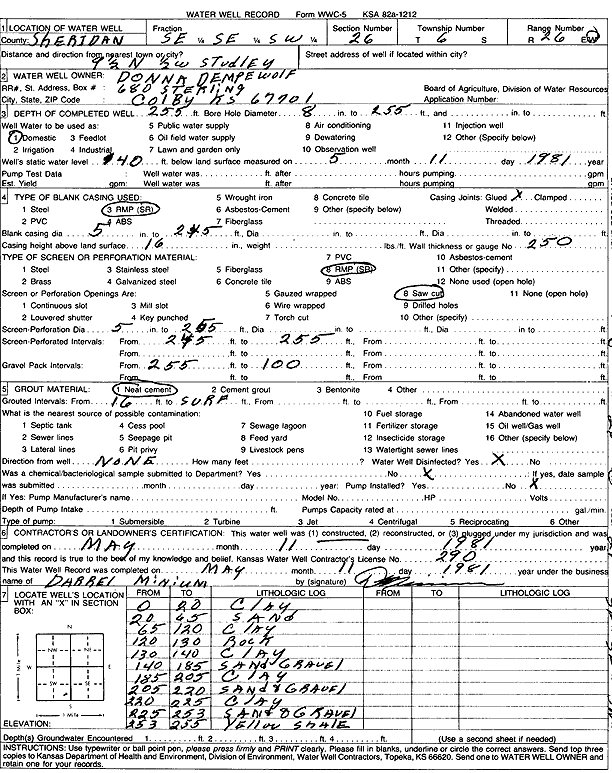 WATER WELL RECORD Form WWC-5 KSA 82a-1212
1 LOCATION OF WATER WELL Fraction Section Number Township Number Range Number
County: SHERIDAN SE ¼ SE ¼ SW ¼ 26 T 6 S R 26 E/W
Distance and direction from nearest town or city? Street address of well if located within city?
N W Studley
2 WATER WELL OWNER: DONNA DEMPEWOLF
RR#, St. Address, Box # : 680 STERLING Board of Agriculture, Division of Water Resources
City, State, ZIP Code : COLBY KS 67701 Application Number:
3 DEPTH OF COMPLETED WELL 255 ft. Bore Hole Diameter 8 in. to 255 ft., and in. to ft.
Well Water to be used as: 5 Public water supply 8 Air conditioning 11 Injection well
1 Domestic 3 Feedlot 6 Oil field water supply 9 Dewatering 12 Other (Specify below)
2 Irrigation 4 Industrial 7 Lawn and garden only 10 Observation well
Well's static water level 140 ft. below land surface measured on 5 month 11 day 1981 year
Pump Test Data : Well water was ft. after hours pumping gpm
Est. Yield gpm: Well water was ft. after hours pumping gpm
4 TYPE OF BLANK CASING USED: 5 Wrought iron 8 Concrete tile Casing Joints: Glued X Clamped
1 Steel 3 RMP (SR) 6 Asbestos-Cement 9 Other (specify below) Welded
2 PVC 4 ABS 7 Fiberglass Threaded
Blank casing dia 5 in. to 245 ft., Dia in. to ft., Dia in. to ft.
Casing height above land surface 16 in., weight lbs./ft. Wall thickness or gauge No. 250
TYPE OF SCREEN OR PERFORATION MATERIAL: 7 PVC 10 Asbestos-cement
1 Steel 3 Stainless steel 5 Fiberglass 8 RMP (SR) 11 Other (specify)
2 Brass 4 Galvanized steel 6 Concrete tile 9 ABS 12 None used (open hole)
Screen or Perforation Openings Are: 5 Gauzed wrapped 8 Saw cut 11 None (open hole)
1 Continuous slot 3 Mill slot 6 Wire wrapped 9 Drilled holes
2 Louvered shutter 4 Key punched 7 Torch cut 10 Other (specify)
Screen-Perforation Dia 5 in. to 245 ft., Dia in. to ft., Dia in. to ft.
Screen-Perforated Intervals: From 245 ft. to 255 ft., From ft. to ft.
From ft. to ft., From ft. to ft.
Gravel Pack Intervals: From 255 ft. to 100 ft., From ft. to ft.
From ft. to ft., From ft. to ft.
5 GROUT MATERIAL: 1 Neat cement 2 Cement grout 3 Bentonite 4 Other
Grouted Intervals: From 16 ft. to SURF ft., From ft. to ft., From ft. to ft.
What is the nearest source of possible contamination: 10 Fuel storage 14 Abandoned water well
1 Septic tank 4 Cess pool 7 Sewage lagoon 11 Fertilizer storage 15 Oil well/Gas well
2 Sewer lines 5 Seepage pit 8 Feed yard 12 Insecticide storage 16 Other (specify below)
3 Lateral lines 6 Pit privy 9 Livestock pens 13 Watertight sewer lines
Direction from well NONE How many feet ? Water Well Disinfected? Yes X No
Was a chemical/bacteriological sample submitted to Department? Yes No X If yes, date sample
was submitted month day year: Pump Installed? Yes No X
If Yes: Pump Manufacturer's name Model No. HP Volts
Depth of Pump Intake ft. Pumps Capacity rated at gal./min.
Type of pump: 1 Submersible 2 Turbine 3 Jet 4 Centrifugal 5 Reciprocating 6 Other
6 CONTRACTOR'S OR LANDOWNER'S CERTIFICATION: This water well was (1) constructed, (2) reconstructed, or (3) plugged under my jurisdiction and was
completed on MAY month 11 day 1981 year
and this record is true to the best of my knowledge and belief. Kansas Water Well Contractor's License No. 290
This Water Well Record was completed on MAY month 11 day 1981 year under the business
name of DARREL MINIUM by (signature)
7 LOCATE WELL'S LOCATION WITH AN "X" IN SECTION BOX: FROM TO LITHOLOGIC LOG FROM TO LITHOLOGIC LOG
0 20 CLAY
20 65 SAND
65 120 CLAY
120 130 ROCK
130 140 CLAY
140 185 SAND GRAVEL
185 205 CLAY
205 220 SAND & GRAVEL
220 225 CLAY
225 253 SAND & GRAVEL
253 255 Yellow Shale
N
NW NE
W E
SW SE
S
1 Mile
1 Mile
ELEVATION:
Depth(s) Groundwater Encountered 1. ft. 2. ft. 3. ft. 4. ft. (Use a second sheet if needed)
INSTRUCTIONS: Use typewriter or ball point pen, please press firmly and PRINT clearly. Please fill in blanks, underline or circle the correct answers. Send top three
copies to Kansas Department of Health and Environment, Division of Environment, Water Well Contractors, Topeka, KS 66620. Send one to WATER WELL OWNER and
retain one for your records.